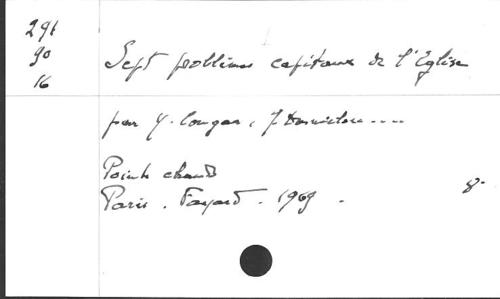 291
90
16
Sept problèmes capitaux de l'Eglise
par Y. Congar, J. Danielou ....
Points chauds
Paris. Fayard. 1969. 8°